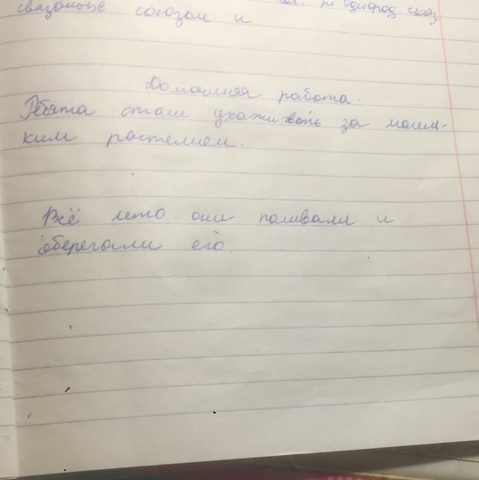 связанные союзом и
Домашняя работа.
Ребята стали ухаживать за малень-
ким растением.
Всё лето они поливали и
оберегали его.